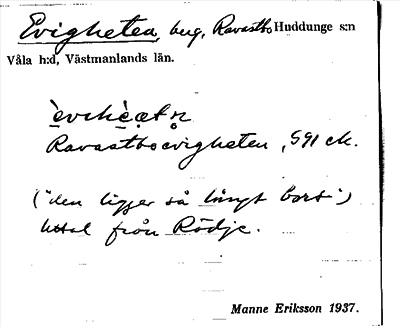 Evigheten, beg, Ravastbo Huddunge s:n
Våla h:d, Västmanlands län.
Ravastboevigheten, 591 ek.
("den ligger så långt bort")
Uttal från Rödje.
Manne Eriksson 1937.